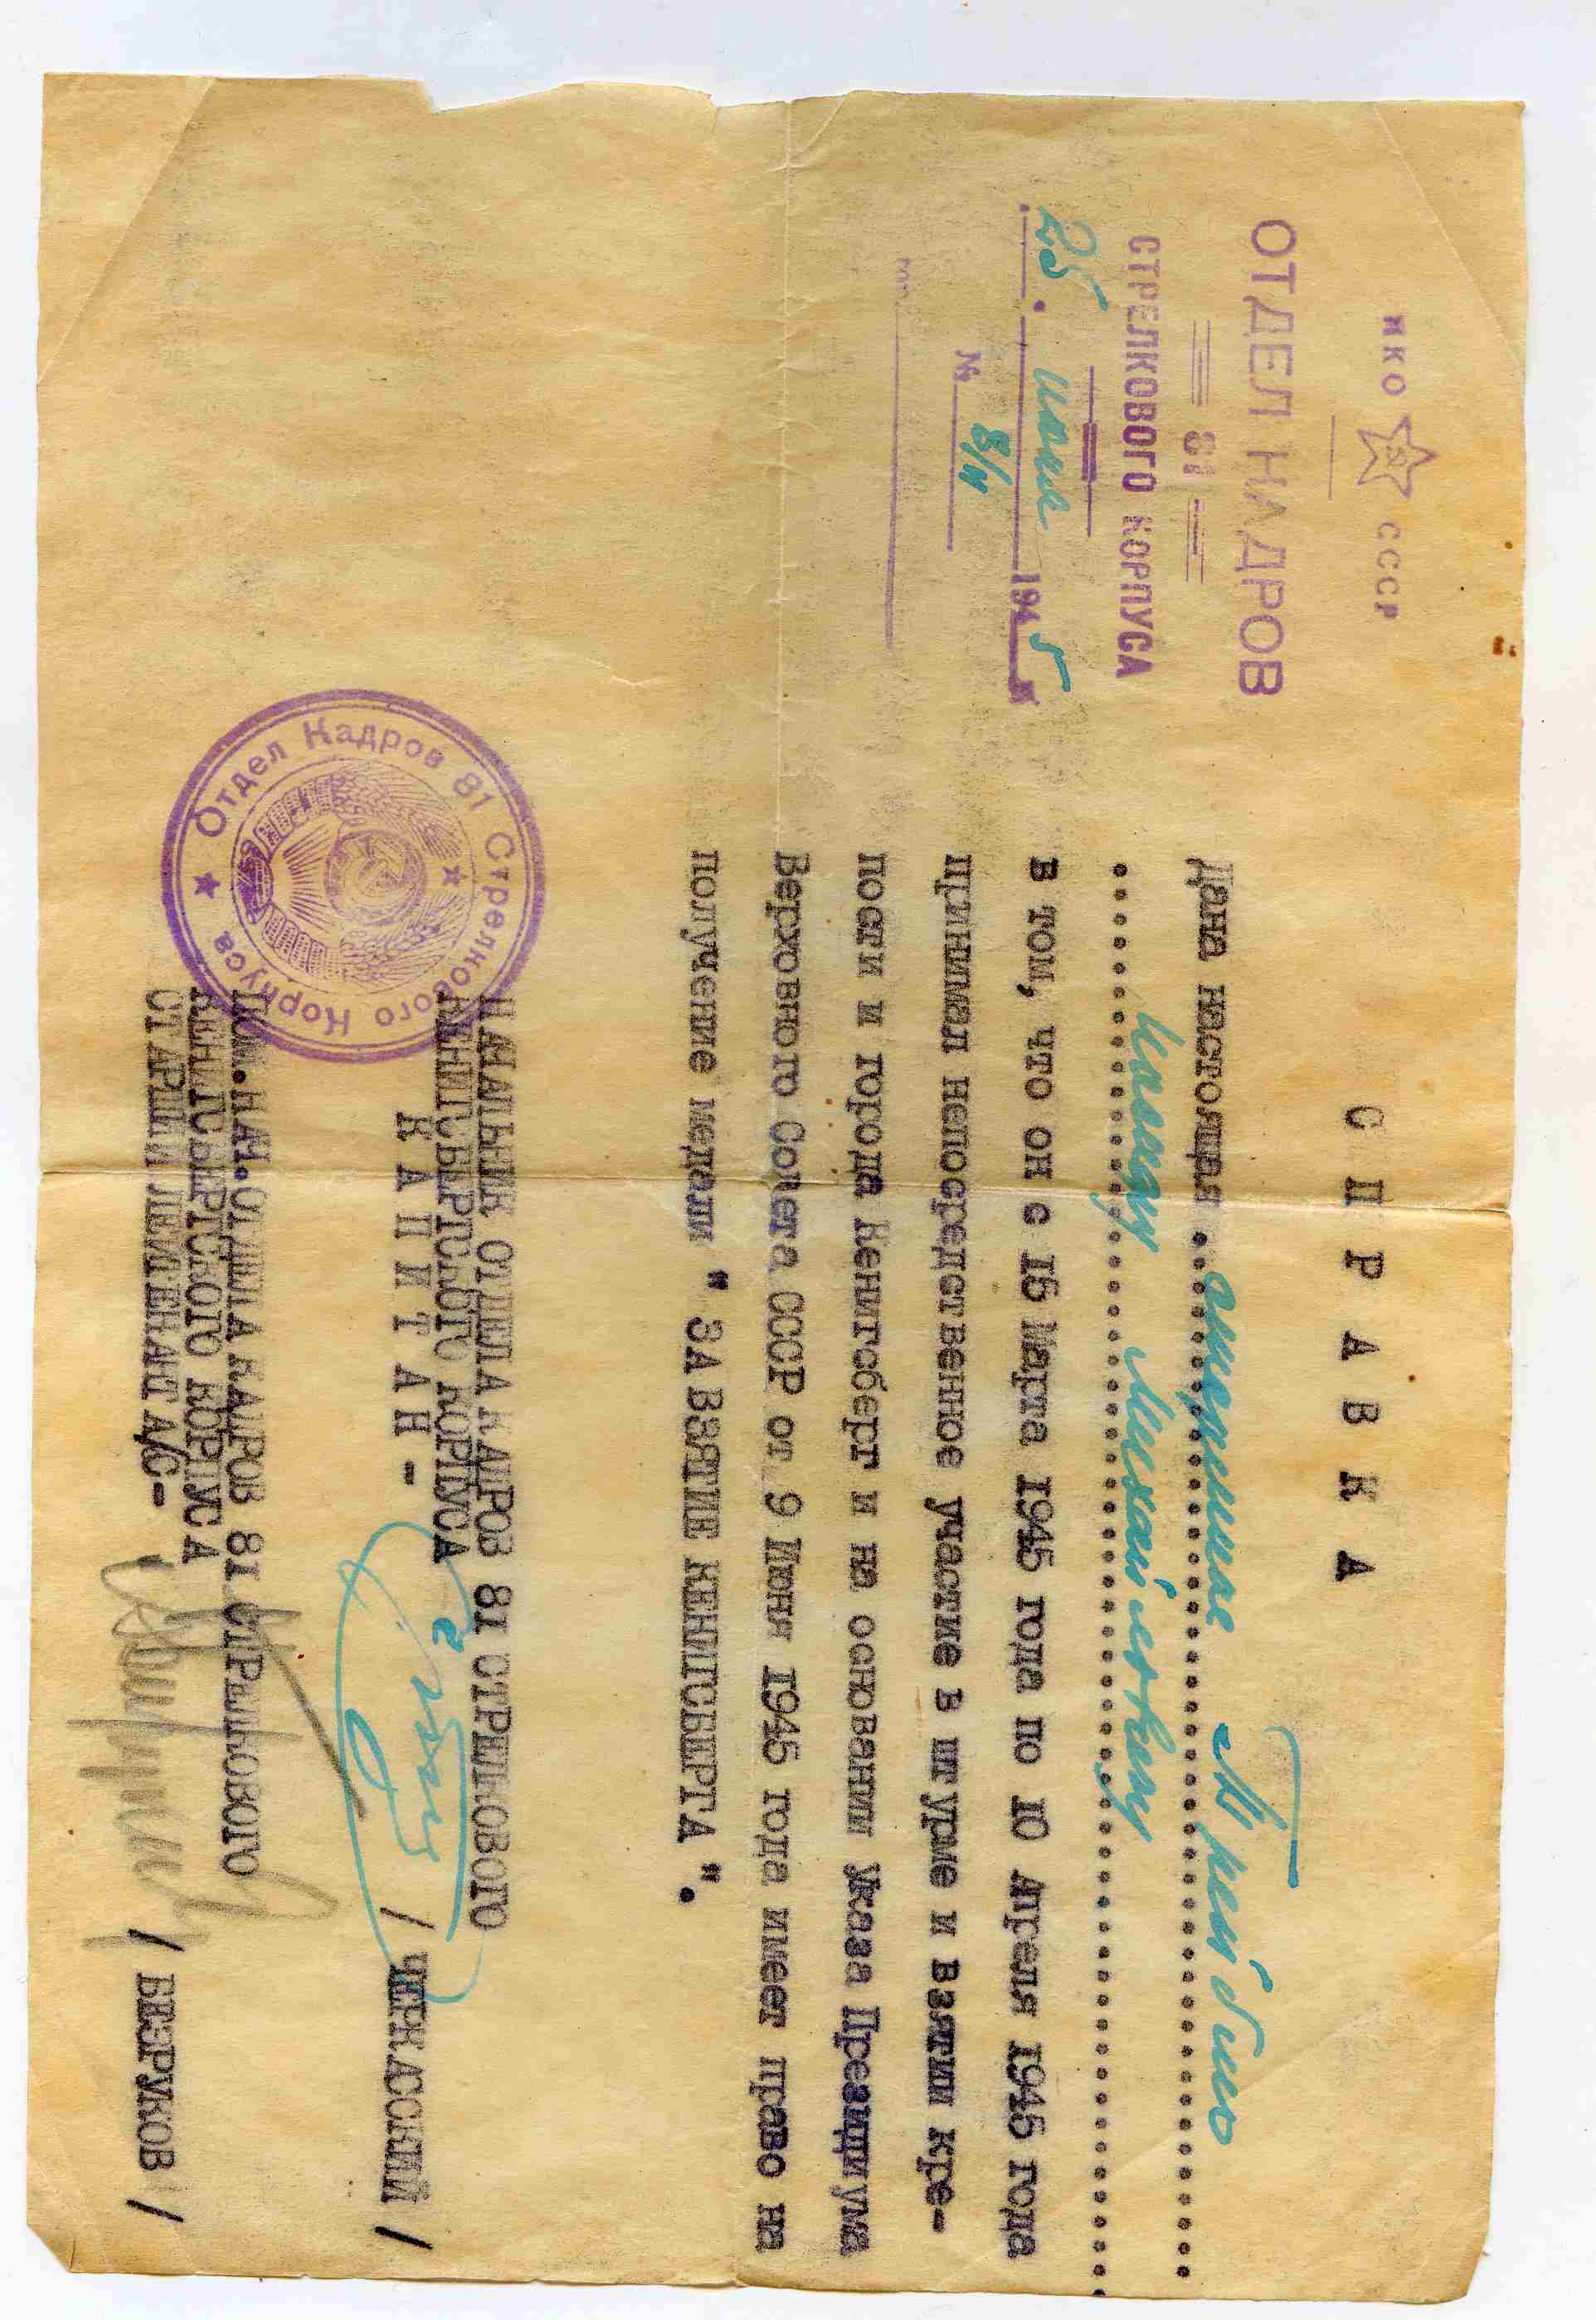 НКО СССР
ОТДЕЛ КАДРОВ
81
СТРЕЛКОВОГО КОРПУСА
25. июля 1945
№ 8/н
С П Р А В К А
Дана настоящая старшине
Михайловичу
в том, что он с 15 Марта 1945 года по 10 Апреля 1945 года
принимал непосредственное участие в штурме и взятии кре-
пости и города Кенигсберг и на основании Указа Президиума
Верховного Совета СССР от 9 Июня 1945 года имеет право на
получение медали " ЗА ВЗЯТИЕ КЕНИГСБЕРГА ".
НАЧАЛЬНИК ОТДЕЛА КАДРОВ 81 СТРЕЛКОВОГО
КЕНИГСБЕРГСКОГО КОРПУСА
К А П И Т А Н -
/ ЧЕРКАССКИЙ /
ПОМ.НАЧ.ОТДЕЛА КАДРОВ 81 СТРЕЛКОВОГО
КЕНИГСБЕРГСКОГО КОРПУСА
СТАРШИЙ ЛЕЙТЕНАНТ А/С-
/ БЕЗРУКОВ /
Отдел Кадров 81 Стрелкового Корпуса